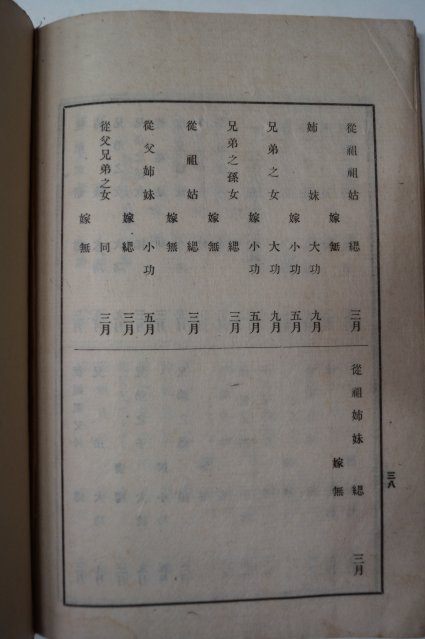 從祖祖姑 緦 三月
嫁 無
姉妹 大功 九月
嫁 小功 五月
兄弟之女 大功 九月
嫁 小功 五月
兄弟之孫女 緦 三月
嫁 無
從祖姑 緦 三月
嫁 無
從父姉妹 小功 五月
嫁 緦 三月
從父兄弟之女 同 三月
嫁 無
從祖姉妹 緦 三月
嫁 無
三八